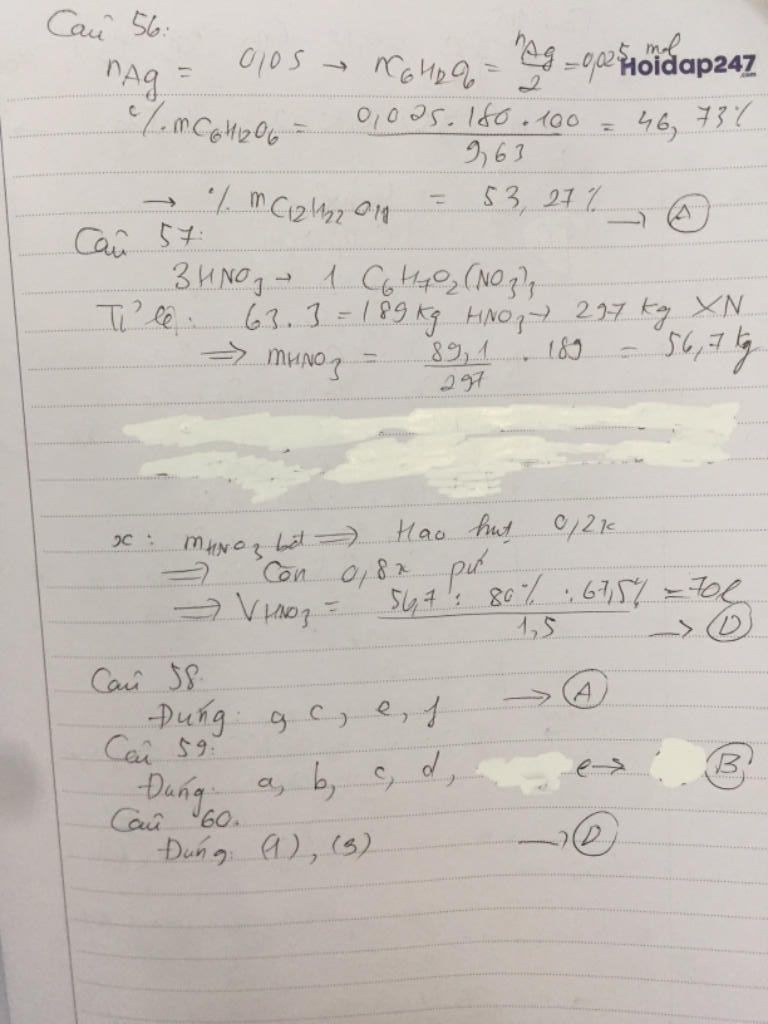 Câu 56:
nAg = 0,05 → nC6H12O6 = nAg/2 = 0,025 mol
Hoidap247.com
%mC6H12O6 = 0,025.180.100/9,63 = 46,73%
→ %mC12H22O11 = 53,27% → A
Câu 57:
3HNO3 → 1 C6H7O2(NO3)3
Tỉ lệ: 63.3 = 189 kg HNO3 → 297 kg XN
⇒ mHNO3 = 89,1/297 . 189 = 56,7 kg
x: mHNO3 bđ ⇒ Hao hụt 0,2x
⇒ Còn 0,8x pứ
⇒ VHNO3 = 56,7 : 80% : 67,5%/1,5 = 70l → D
Câu 58.
Đúng: a, c, e, f → A
Câu 59:
Đúng: a, b, c, d, e → B
Câu 60.
Đúng: (1), (3) → D